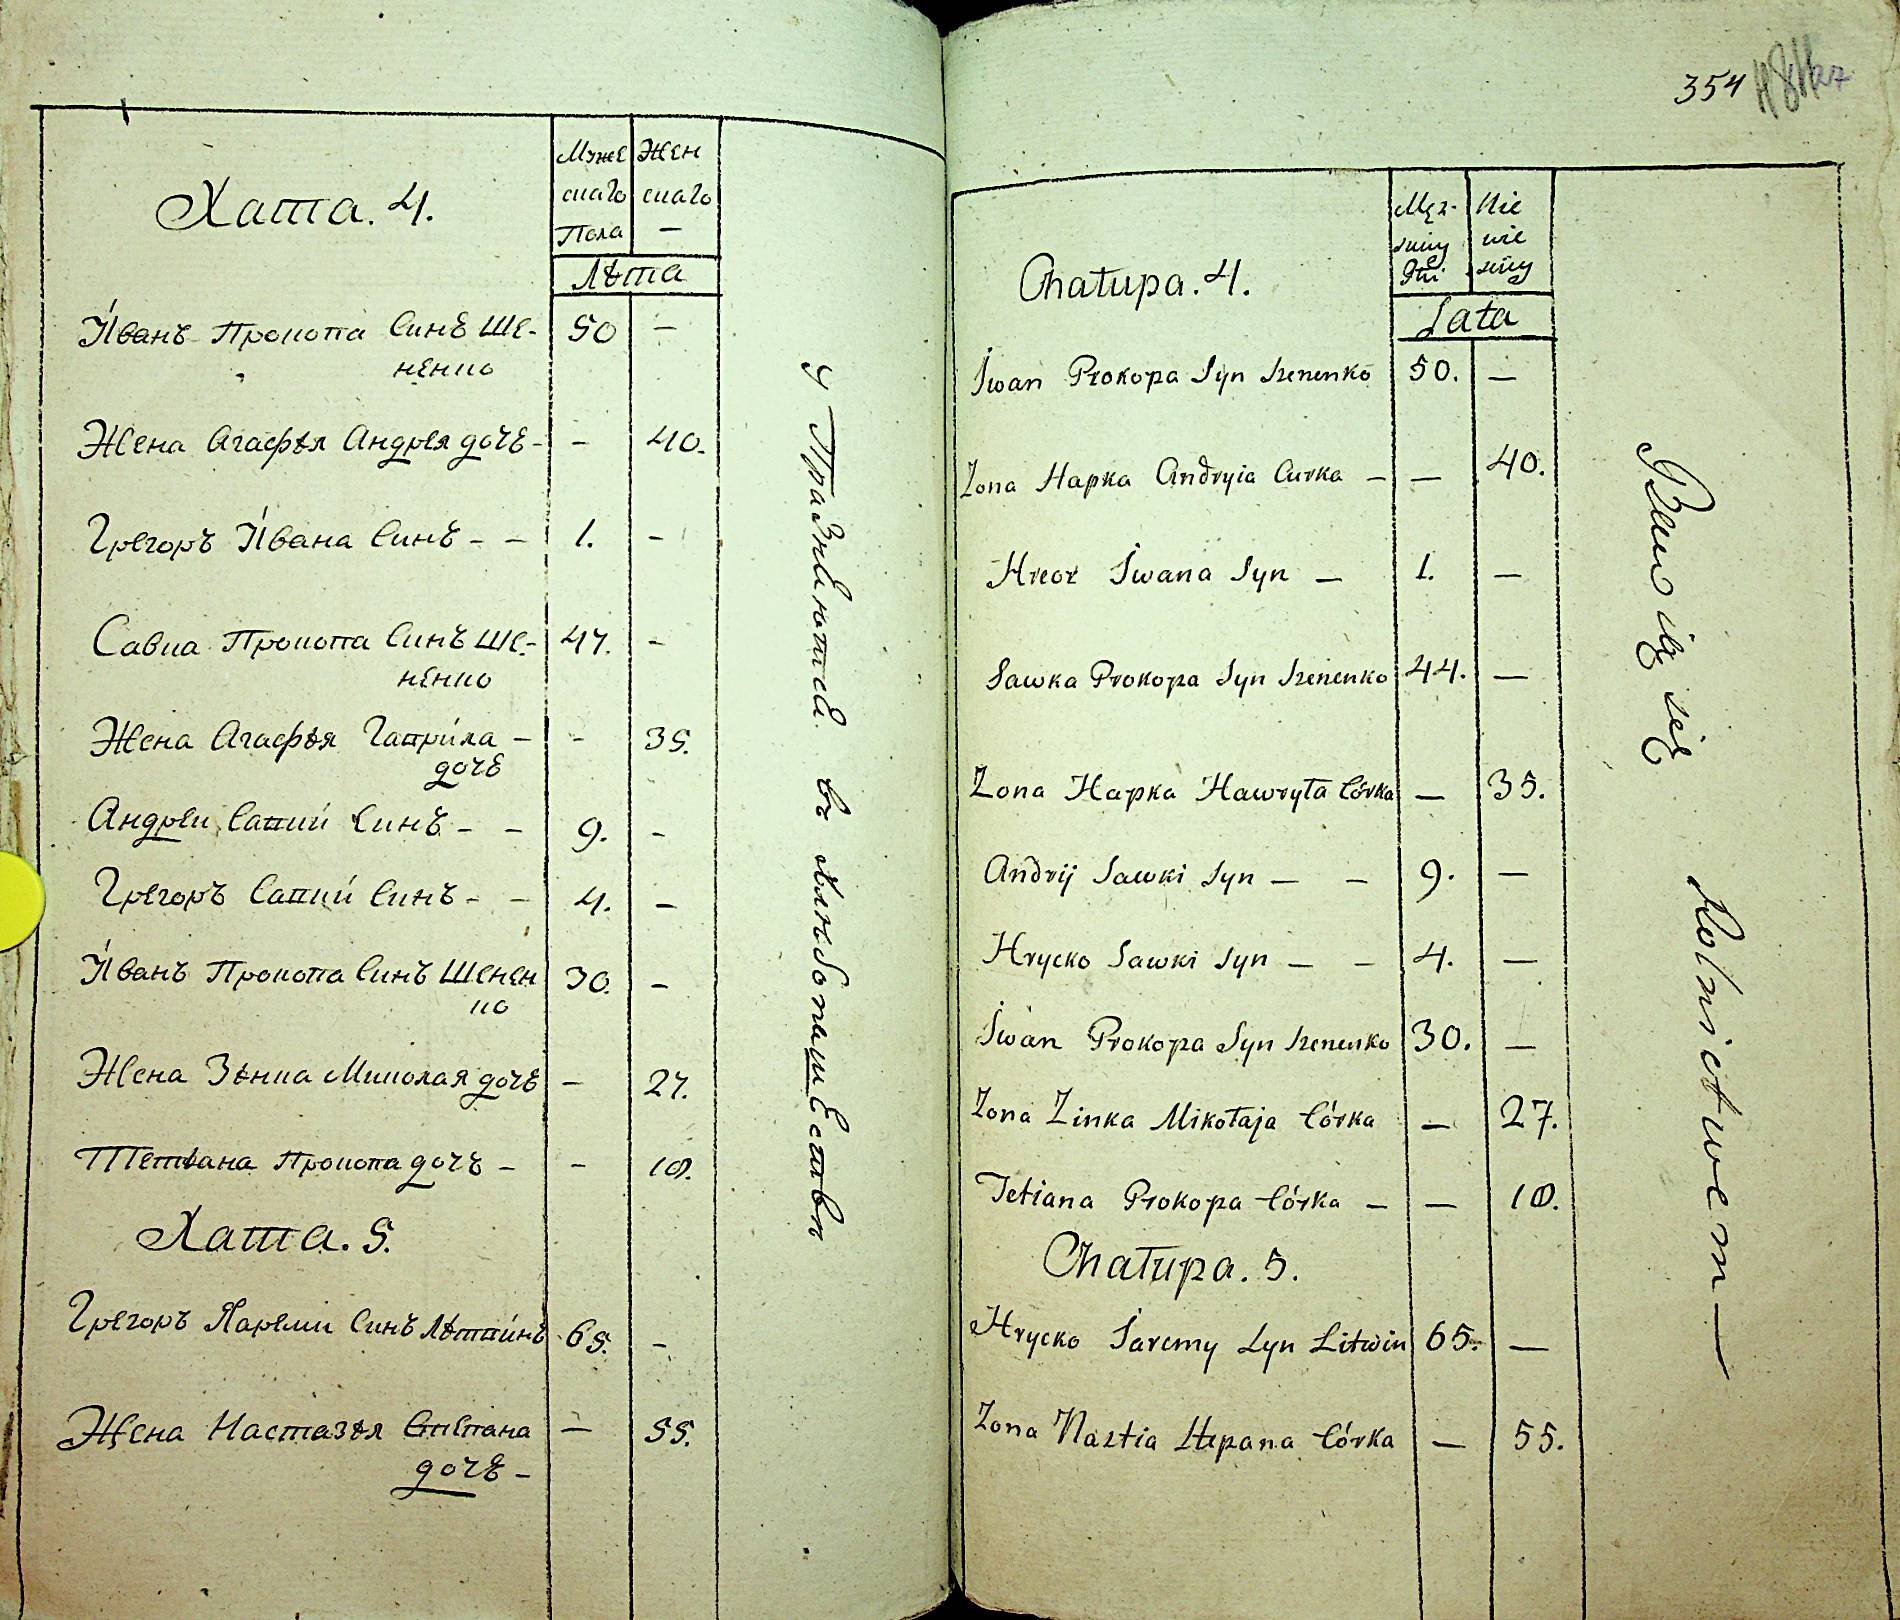 Хата. 4.
Муже Жен
скаго скаго
Пола —
Лѣта
Иванъ Прокопа Синъ Ше- 50 —
ненко
Жена Агафѣя Андрея дочъ - - 40.
Грегоръ Ивана Синъ - - 1. -
Савка Прокопа Синъ Ше- 47. -
ненко
Жена Агафѣя Гаврила - - 35.
дочъ
Андреи Савки Синъ - - 9. -
Грегоръ Савки Синъ - - 4. -
Иванъ Прокопа Синъ Шенен 30. -
ко
Жена Зѣнка Миколая дочъ - 27.
Тетѣана Прокопа дочъ - - 18.
Хата. 5.
Грегоръ Яареми Синъ Лѣтвинъ 65. -
Жена Настазѣя Степана — 55.
дочъ -
354
Chałupa. 4.
Męz- Nie
skiey wie
Płci skiey
Lata
Iwan Prokopa Syn Szenenko 50. —
Zona Hapka Andryia Curka — — 40.
Hreor Iwana Syn — 1. —
Sawka Prokopa Syn Szenenko 44. —
Zona Hapka Hawryła Córka — 35.
Andrij Sawki Syn — — 9. —
Hrycko Sawki Syn — — 4. —
Iwan Prokopa Syn Szenenko 30. —
Zona Zinka Mikołaja Córka — 27.
Tetiana Prokopa Córka — — 18.
Chałupa. 5.
Hrycko Jaremy Syn Litwin 65. —
Zona Nastia Stepana Córka — 55.
Bawią się Rolnictwem —